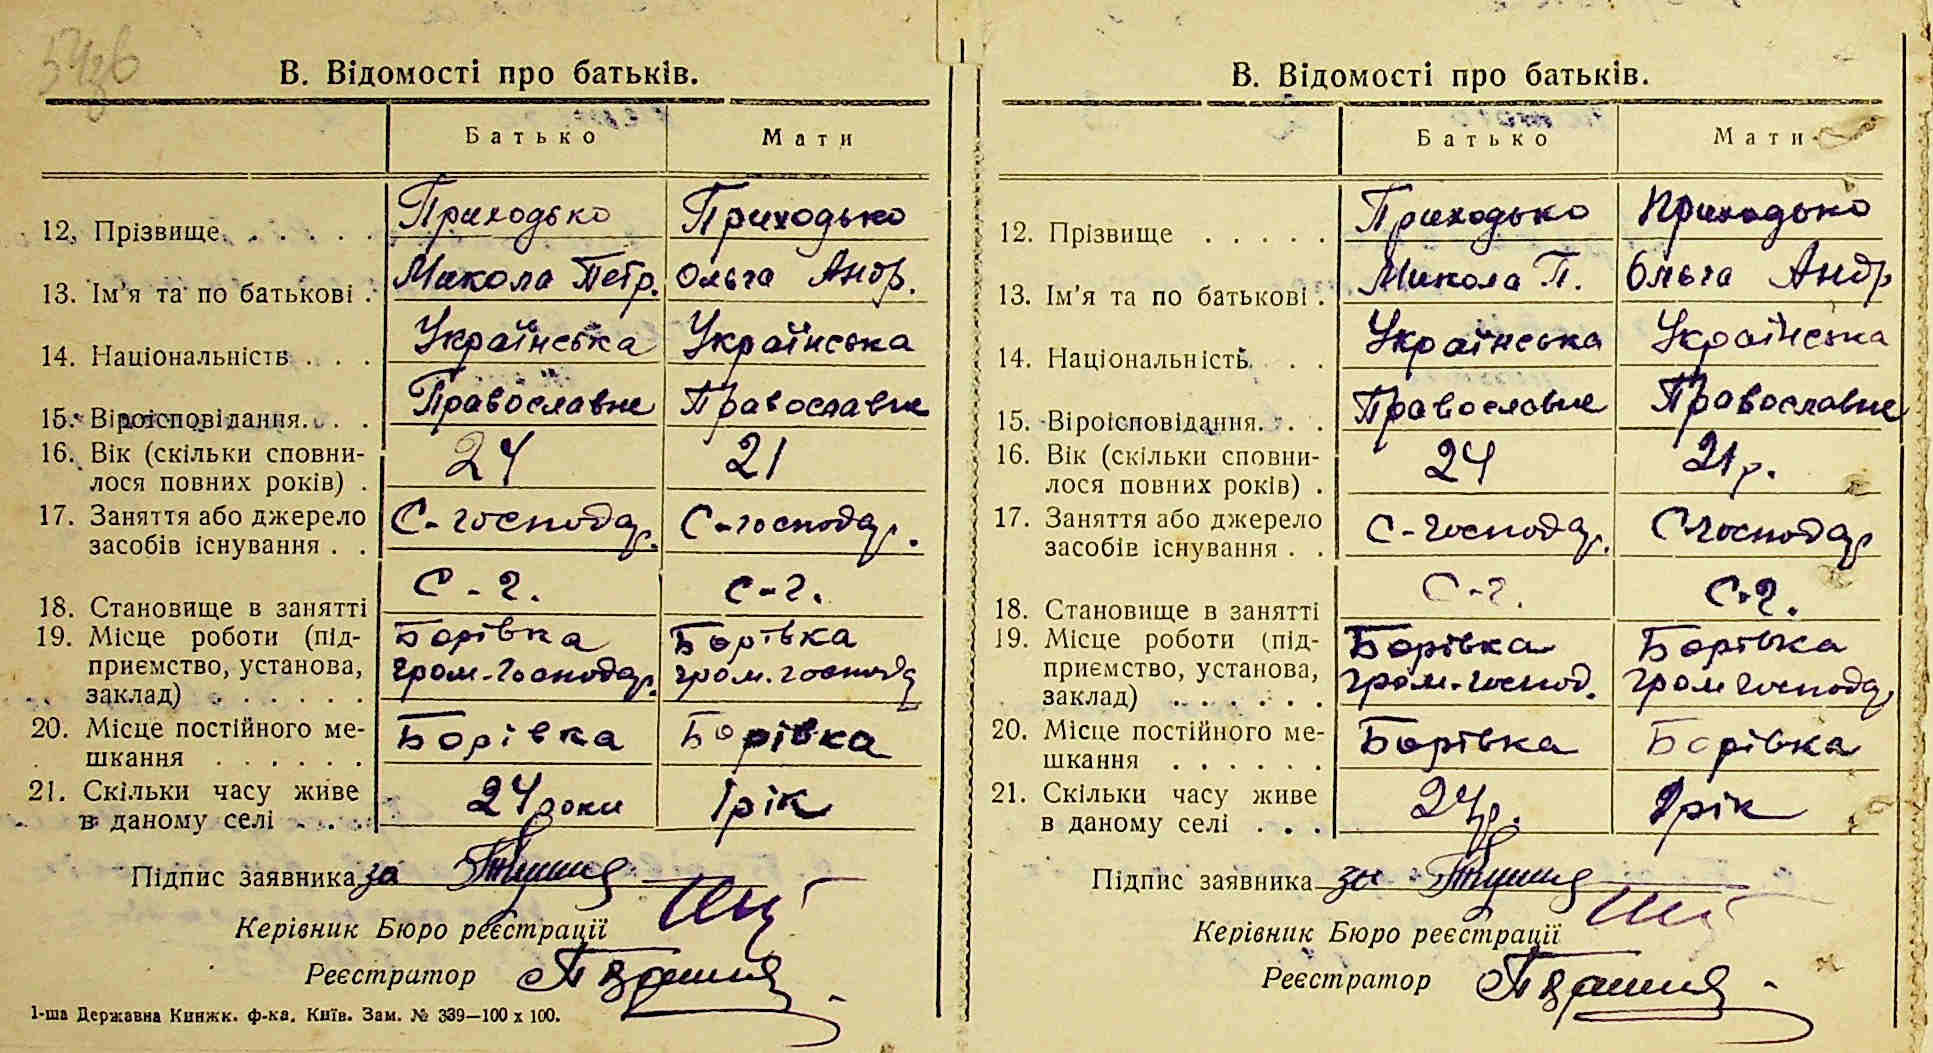 В. Відомості про батьків.
Батько Мати
12. Прізвище Приходько Приходько
13. Ім'я та по батькові Микола Петр. Ольга Андр.
14. Національність Українська Українська
15. Віроісповідання Православне Православне
16. Вік (скільки сповни-
лося повних років) 24 21
17. Заняття або джерело
засобів існування С-господар. С-господар.
18. Становище в занятті С-г. с-г.
19. Місце роботи (під- Борівка Борівка
приємство, установа, гром.-господар. гром. господ
заклад)
20. Місце постійного ме-
шкання Борівка Борівка
21. Скільки часу живе
в даному селі 24 роки 1 рік
Підпис заявника за
Керівник Бюро реєстрації
Реєстратор
1-ша Державна Книжк. ф-ка. Київ. Зам. № 339—100 х 100.
В. Відомості про батьків.
Батько Мати
12. Прізвище Приходько Приходько
13. Ім'я та по батькові Микола П. Ольга Андр
14. Національність Українська Українська
15. Віроісповідання Православне Православне
16. Вік (скільки сповни-
лося повних років) 24 21 р.
17. Заняття або джерело
засобів існування С-господар. С-господар
18. Становище в занятті С-г. С-г.
19. Місце роботи (під- Борівка Борівка
приємство, установа, гром.-господ. гром господар
заклад)
20. Місце постійного ме-
шкання Борівка Борівка
21. Скільки часу живе
в даному селі 24 р. 1 рік
Підпис заявника за
Керівник Бюро реєстрації
Реєстратор